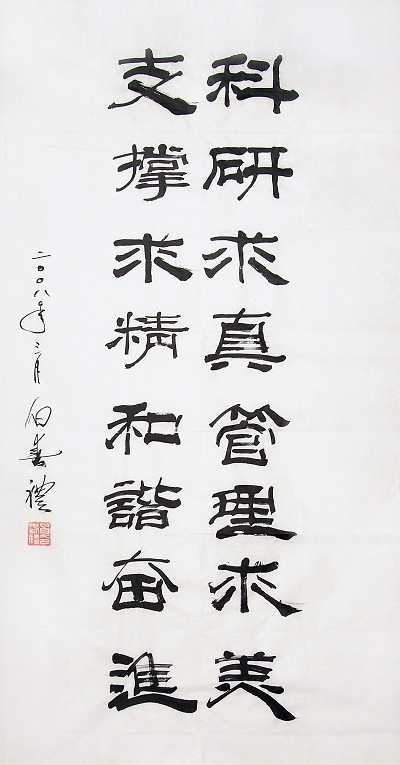 科研求真管理求美
支撑求精和諧奋進
二〇〇八年三月 白春禮